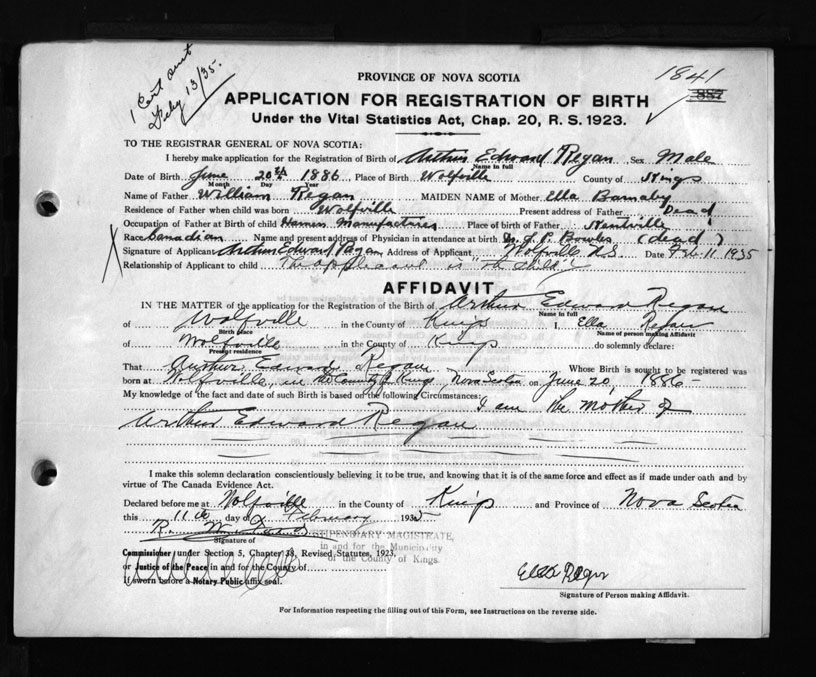 1 Cert out
Feby 13/35.
1841
887
PROVINCE OF NOVA SCOTIA
APPLICATION FOR REGISTRATION OF BIRTH
Under the Vital Statistics Act, Chap. 20, R. S. 1923.
TO THE REGISTRAR GENERAL OF NOVA SCOTIA:
I hereby make application for the Registration of Birth of Arthur Edward Regan Sex Male
Name in full
Date of Birth June 20th 1886 Place of Birth Wolfville County of Kings
Month Day Year
Name of Father William Regan MAIDEN NAME of Mother Ella Barnaby
Residence of Father when child was born Wolfville Present address of Father Dead
Occupation of Father at Birth of child Harness Manufacturer Place of birth of Father Kentville
Race Canadian Name and present address of Physician in attendance at birth Dr. J. P. Bowles (dead)
Signature of Applicant Arthur Edward Regan Address of Applicant Wolfville N.S. Date Feb 11 1935
Relationship of Applicant to child The applicant is "the child"
AFFIDAVIT
IN THE MATTER of the application for the Registration of the Birth of Arthur Edward Regan
Name in full
of Wolfville in the County of Kings I, Ella Regan
Birth place Name of person making Affidavit
of Wolfville in the County of Kings do solemnly declare:
Present residence
That Arthur Edward Regan Whose Birth is sought to be registered was
born at Wolfville, in the County of Kings, Nova Scotia on June 20, 1886
My knowledge of the fact and date of such Birth is based on the following Circumstances: I am the mother of
Arthur Edward Regan
I make this solemn declaration conscientiously believing it to be true, and knowing that it is of the same force and effect as if made under oath and by
virtue of The Canada Evidence Act.
Declared before me at Wolfville in the County of Kings and Province of Nova Scotia
this 11th day of February 1935
R. W.
Signature of
STIPENDIARY MAGISTRATE,
in and for the Municipality
of the County of Kings.
Commissioner under Section 5, Chapter 38, Revised Statutes, 1923,
or Justice of the Peace in and for the County of
If sworn before a Notary Public affix seal.
Ella Regan
Signature of Person making Affidavit.
For Information respecting the filling out of this Form, see Instructions on the reverse side.